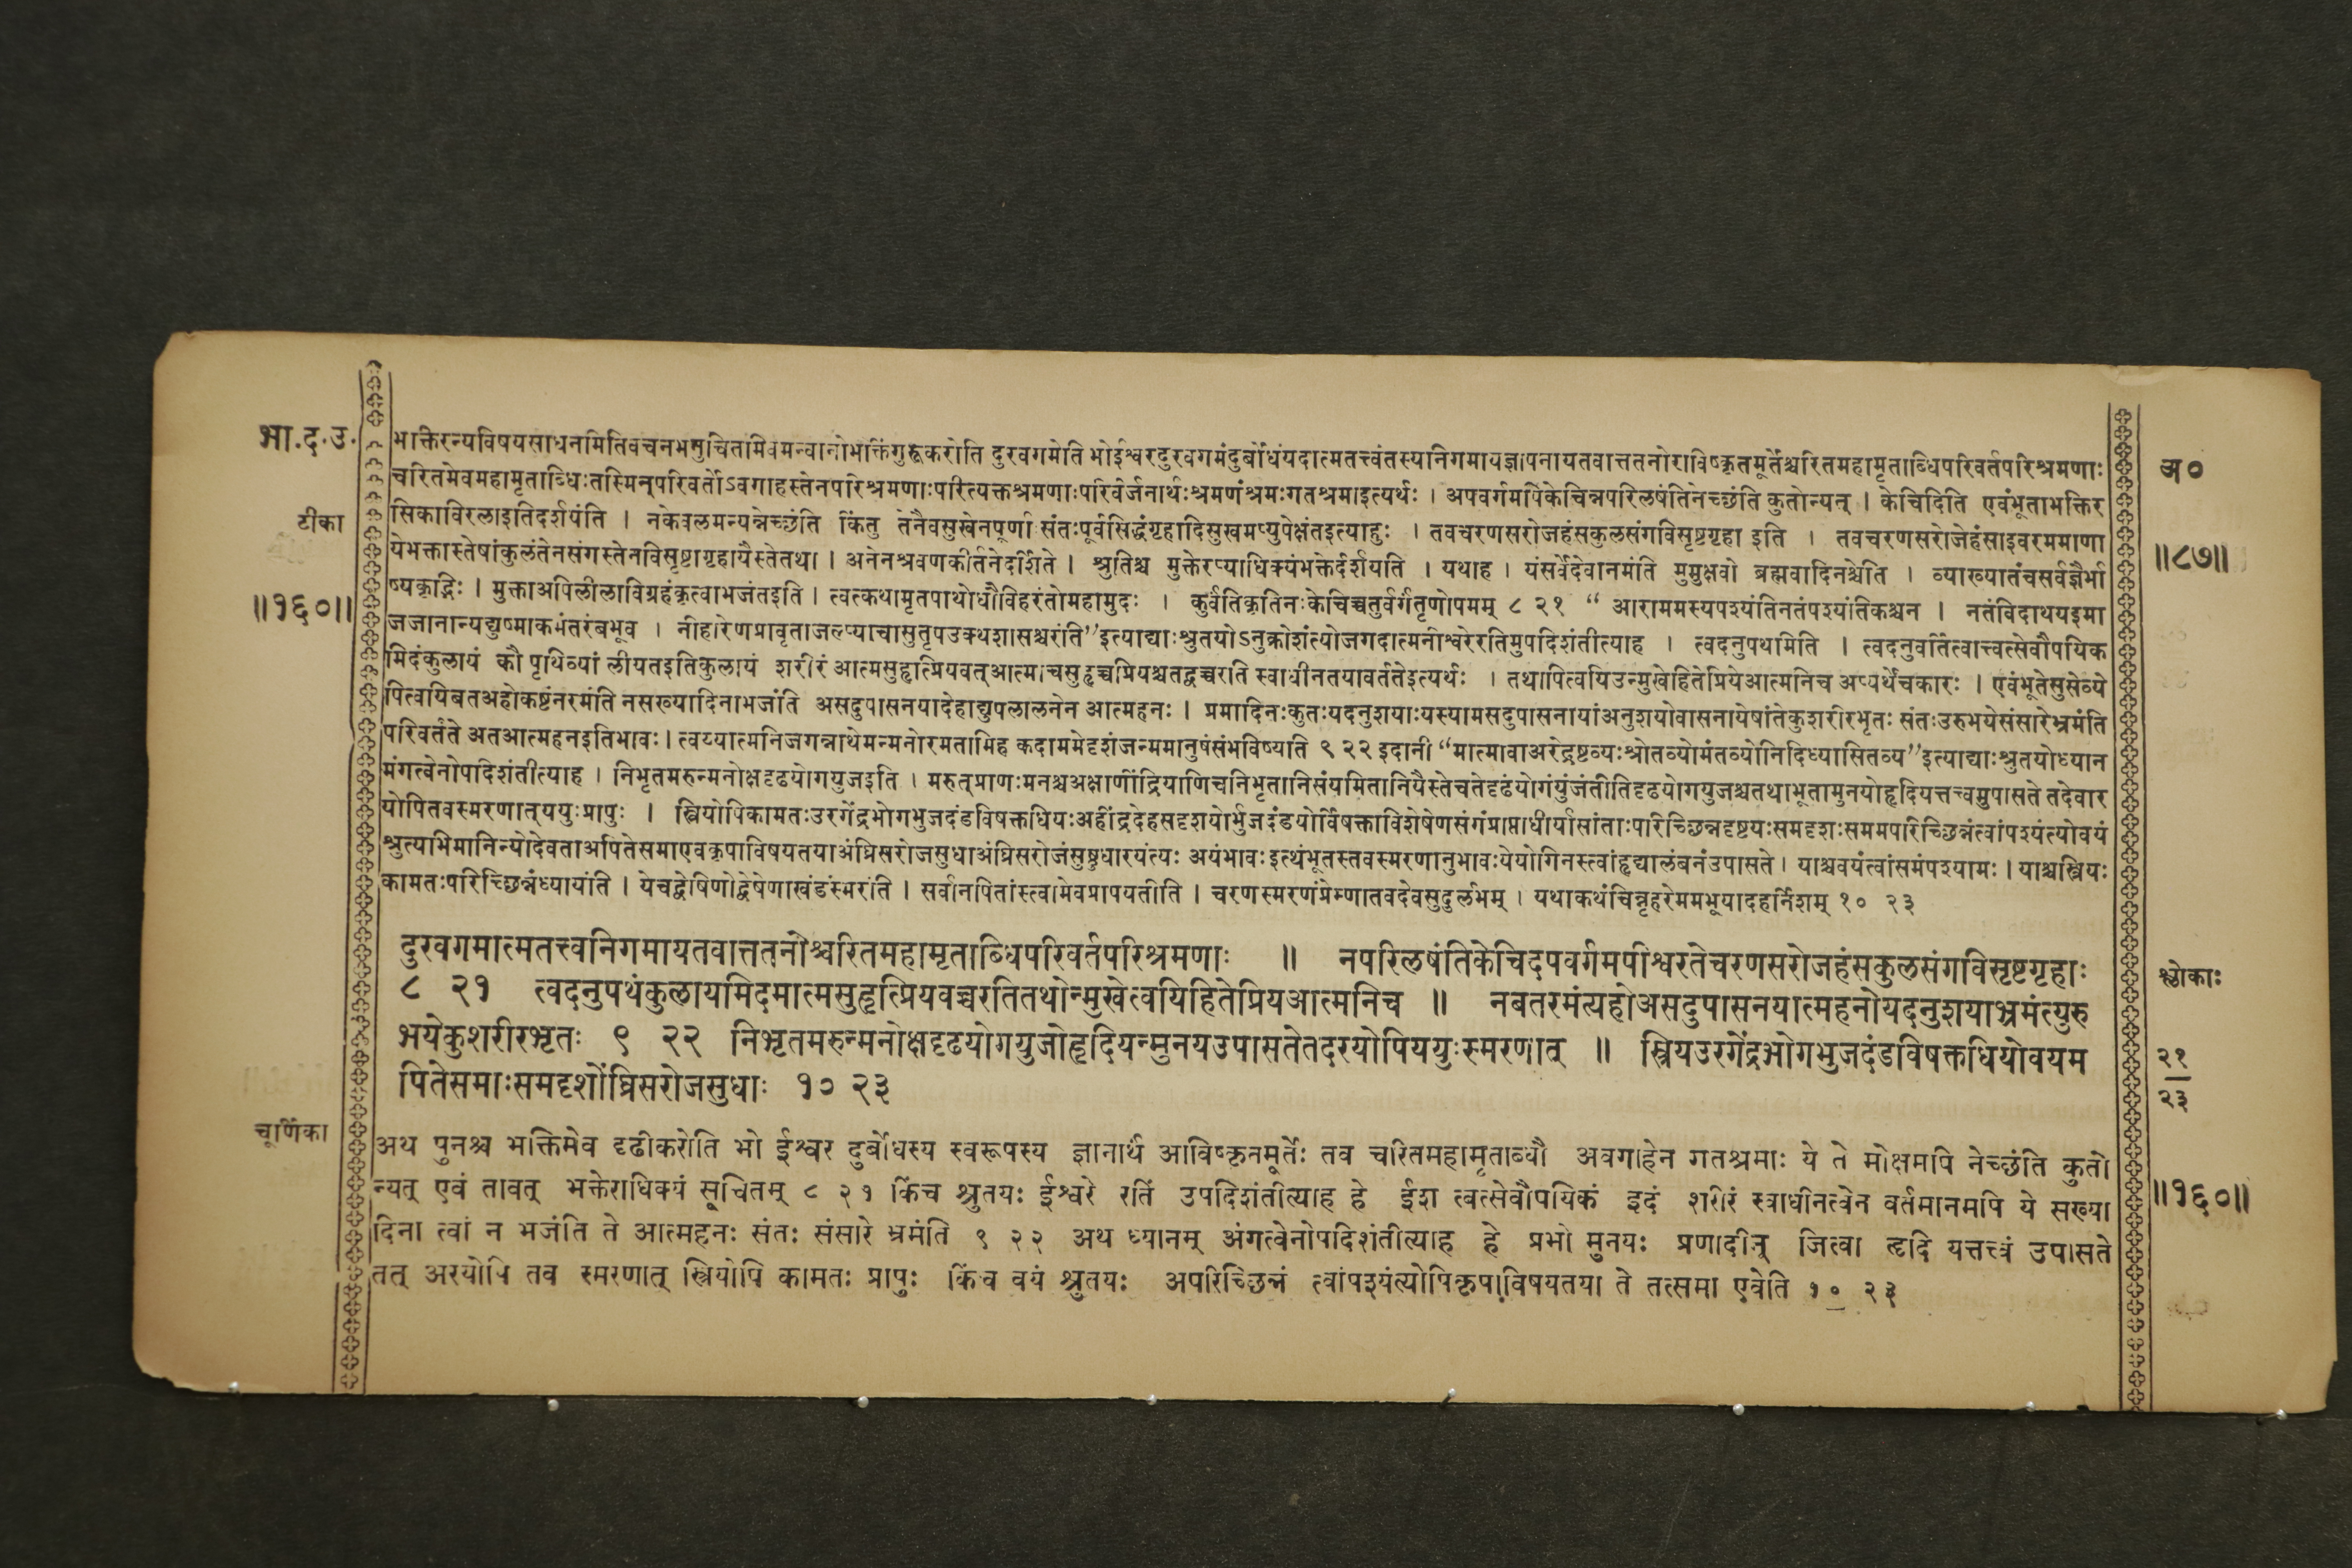 भा.द.उ.
टीका
॥१६०॥
भक्तिरन्यविषयसाधनमितिवचनमनुचितमिवमन्वानोभक्तिंगुरूकरोति दुरवगमेति भोईश्वरदुरवगमंदुर्बोधंयदात्मतत्त्वंतस्यनिगमायज्ञापनायतवात्ततनोराविष्कृतमूर्तेश्चरितमहामृताब्धिपरिवर्तपरिश्रमणाः
चरितमेवमहामृताब्धिःतस्मिन्परिवर्तोऽवगाहस्तेनपरिश्रमणाःपरित्यक्तश्रमणाःपरिवर्जनार्थःश्रमणंश्रमःगतश्रमाइत्यर्थः । अपवर्गमपिकेचिन्नपरिलषंतिनेच्छंति कुतोन्यत् । केचिदिति एवंभूताभक्तिर
सिकाविरलाइतिदर्शयंति । नकेवलमन्यन्नेच्छंति किंतु तेनैवसुखेनपूर्णा संतःपूर्वसिद्धंगृहादिसुखमप्युपेक्षंतइत्याहुः । तवचरणसरोजहंसकुलसंगविसृष्टगृहा इति । तवचरणसरोजेहंसाइवरममाणा
येभक्तास्तेषांकुलंतेनसंगस्तेनविसृष्टागृहायैस्तेतथा । अनेनश्रवणकीर्तनेदर्शिते । श्रुतिश्च मुक्तेरप्याधिक्यंभक्तेर्दर्शयति । यथाह । यंसर्वेदेवानमंति मुमुक्षवो ब्रह्मवादिनश्चेति । व्याख्यातंचसर्वज्ञैर्भा
ष्यकृद्भिः । मुक्ताअपिलीलाविग्रहंकृत्वाभजंतइति । त्वत्कथामृतपाथोधौविहरंतोमहामुदः । कुर्वंतिकृतिनःकेचिच्चतुर्वर्गंतृणोपमम् ८ २१ “ आराममस्यपश्यंतिनतंपश्यंतिकश्चन । नतंविदाथयइमा
जजानान्यद्युष्माकमंतरंबभूव । नीहारेणप्रावृताजल्प्याचासुतृपउक्थशासश्चरंति”इत्याद्याःश्रुतयोऽनुक्रोशंत्योजगदात्मनीश्वरेरतिमुपदिशंतीत्याह । त्वदनुपथमिति । त्वदनुवर्तित्वात्त्वत्सेवौपयिक
मिदंकुलायं कौ पृथिव्यां लीयतइतिकुलायं शरीरं आत्मसुहृत्प्रियवत्आत्माचसुहृच्चप्रियश्चतद्वच्चरति स्वाधीनतयावर्ततेइत्यर्थः । तथापित्वयिउन्मुखेहितेप्रियेआत्मनिच अप्यर्थेचकारः । एवंभूतेसुसेव्ये
पित्वयिबतअहोकष्टंनरमंति नसख्यादिनाभजंति असदुपासनयादेहाद्युपलालनेन आत्महनः । प्रमादिनःकुतःयदनुशयाःयस्यामसदुपासनायांअनुशयोवासनायेषांतेकुशरीरभृतः संतःउरुभयेसंसारेभ्रमंति
परिवर्तंते अतआत्महनइतिभावः । त्वय्यात्मनिजगन्नाथेमन्मनोरमतामिह कदाममेदृशंजन्ममानुषंसंभविष्यति ९ २२ इदानीं “मात्मावाअरेद्रष्टव्यःश्रोतव्योमंतव्योनिदिध्यासितव्य”इत्याद्याःश्रुतयोध्यान
मंगत्वेनोपदिशंतीत्याह । निभृतमरुन्मनोक्षदृढयोगयुजइति । मरुत्प्राणःमनश्चअक्षाणींद्रियाणिचनिभृतानिसंयमितानियैस्तेचतेदृढंयोगंयुंजंतीतिदृढयोगयुजश्चतथाभूतामुनयोहृदियत्तत्त्वमुपासते तदेवार
योपितवस्मरणात्ययुःप्रापुः । स्त्रियोपिकामतःउरगेंद्रभोगभुजदंडविषक्तधियःअहींद्रदेहसदृशयोर्भुजदंडयोर्विषक्ताविशेषेणसंगंप्राप्ताधीर्यासांताःपरिच्छिन्नदृष्टयःसमदृशःसममपरिच्छिन्नंत्वांपश्यंत्योवयं
श्रुत्यभिमानिन्योदेवताअपितेसमाएवकृपाविषयतयाअंघ्रिसरोजसुधाअंघ्रिसरोजंसुष्ठुधारयंत्यः अयंभावःइत्थंभूतस्तवस्मरणानुभावःयेयोगिनस्त्वांहृद्यालंबनंउपासते । याश्चवयंत्वांसमंपश्यामः । याश्चस्त्रियः
कामतःपरिच्छिन्नंध्यायंति । येचद्वेषिणोद्वेषेणाखंडंस्मरंति । सर्वानपितांस्त्वामेवप्रापयतीति । चरणस्मरणंप्रेम्णातवदेवसुदुर्लभम् । यथाकथंचिन्नृहरेममभूयादहर्निशम् १० २३
दुरवगमात्मतत्त्वनिगमायतवात्ततनोश्चरितमहामृताब्धिपरिवर्तपरिश्रमणाः ॥ नपरिलषंतिकेचिदपवर्गमपीश्वरतेचरणसरोजहंसकुलसंगविसृष्टगृहाः
८ २१ त्वदनुपथंकुलायमिदमात्मसुहृत्प्रियवच्चरतितथोन्मुखेत्वयिहितेप्रियआत्मनिच ॥ नबतरमंत्यहोअसदुपासनयात्महनोयदनुशयाभ्रमंत्युरु
भयेकुशरीरभृतः ९ २२ निभृतमरुन्मनोक्षदृढयोगयुजोहृदियन्मुनयउपासतेतदरयोपिययुःस्मरणात् ॥ स्त्रियउरगेंद्रभोगभुजदंडविषक्तधियोवयम
पितेसमाःसमदृशोंघ्रिसरोजसुधाः १० २३
चूर्णिका
अथ पुनश्च भक्तिमेव दृढीकरोति भो ईश्वर दुर्बोधस्य स्वरूपस्य ज्ञानार्थं आविष्कृतमूर्तेः तव चरितमहामृताब्धौ अवगाहेन गतश्रमाः ये ते मोक्षमपि नेच्छंति कुतो
न्यत् एवं तावत् भक्तेराधिक्यं सूचितम् ८ २१ किंच श्रुतयः ईश्वरे रतिं उपदिशंतीत्याह हे ईश त्वत्सेवौपयिकं इदं शरीरं स्वाधीनत्वेन वर्तमानमपि ये सख्या
दिना त्वां न भजंति ते आत्महनः संतः संसारे भ्रमंति ९ २२ अथ ध्यानम् अंगत्वेनोपदिशंतीत्याह हे प्रभो मुनयः प्रणादीन् जित्वा हृदि यत्तत्त्वं उपासते
तत् अरयोपि तव स्मरणात् स्त्रियोपि कामतः प्रापुः किंच वयं श्रुतयः अपरिच्छिन्नं त्वांपश्यंत्योपिकृपाविषयतया ते तत्समा एवेति १० २३
अ०
॥८७॥
श्लोकाः
२१
२३
॥१६०॥